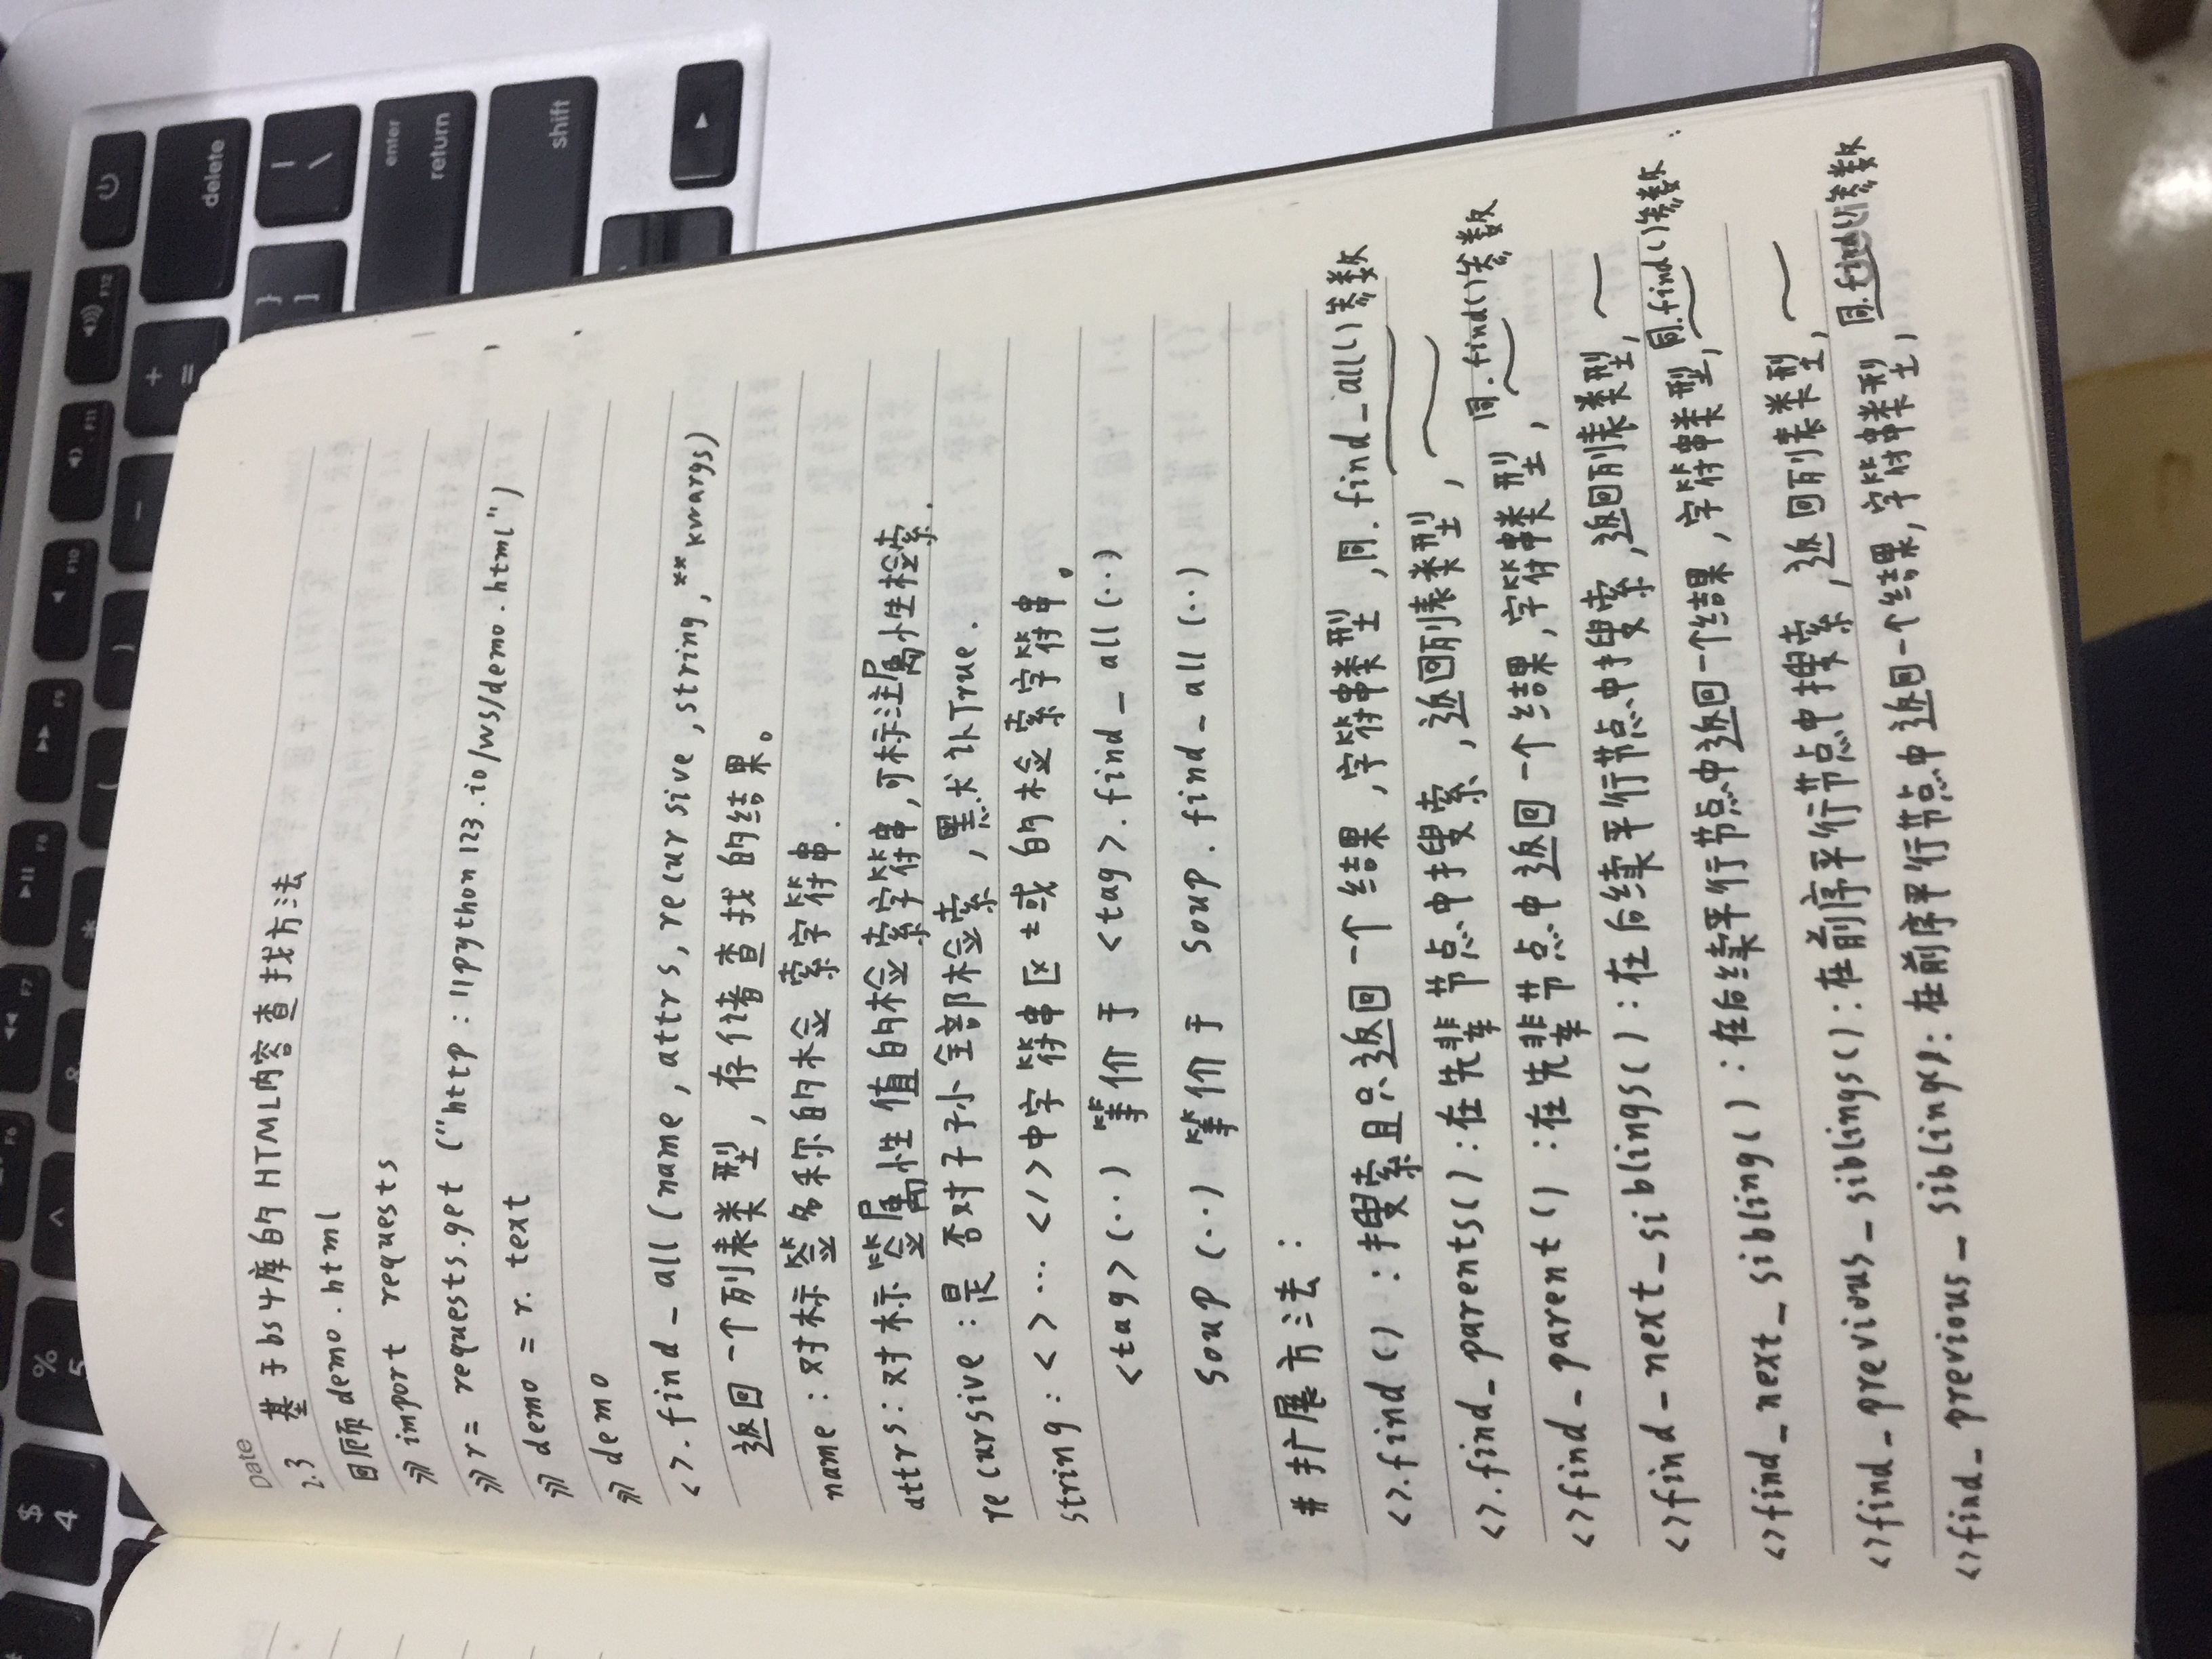 Date
2.3 基于bs4库的HTML内容查找方法
回顾demo.html
>>> import requests
>>> r = requests.get("http://python123.io/ws/demo.html")
>>> demo = r.text
>>> demo
<>.find_all(name, attrs, recursive, string, **kwargs)
返回一个列表类型，存储查找的结果。
name：对标签名称的检索字符串.
attrs：对标签属性值的检索字符串,可标注属性检索.
recursive：是否对子孙全部检索,默认True.
string：<>…</>中字符串区域的检索字符串。
<tag>(..) 等价于 <tag>.find_all(..)
soup(..) 等价于 soup.find_all(..)
# 扩展方法：
<>.find()：搜索且只返回一个结果,字符串类型,同.find_all()参数
<>.find_parents()：在先辈节点中搜索,返回列表类型, ~
<>find_parent()：在先辈节点中返回一个结果,字符串类型,同.find()参数
<>find_next_siblings()：在后续平行节点中搜索,返回列表类型, ~
<>find_next_sibling()：在后续平行节点中返回一个结果,字符串类型,同.find()参数
<>find_previous_siblings()：在前序平行节点中搜索,返回列表类型, ~
<>find_previous_siblings)：在前序平行节点中返回一个结果,字符串类型,同.find()参数
delete
enter
return
shift
|
\
}
]
+
=
F12
F11
F10
F9
F8
F7
F6
*
&
^
%
5
$
4